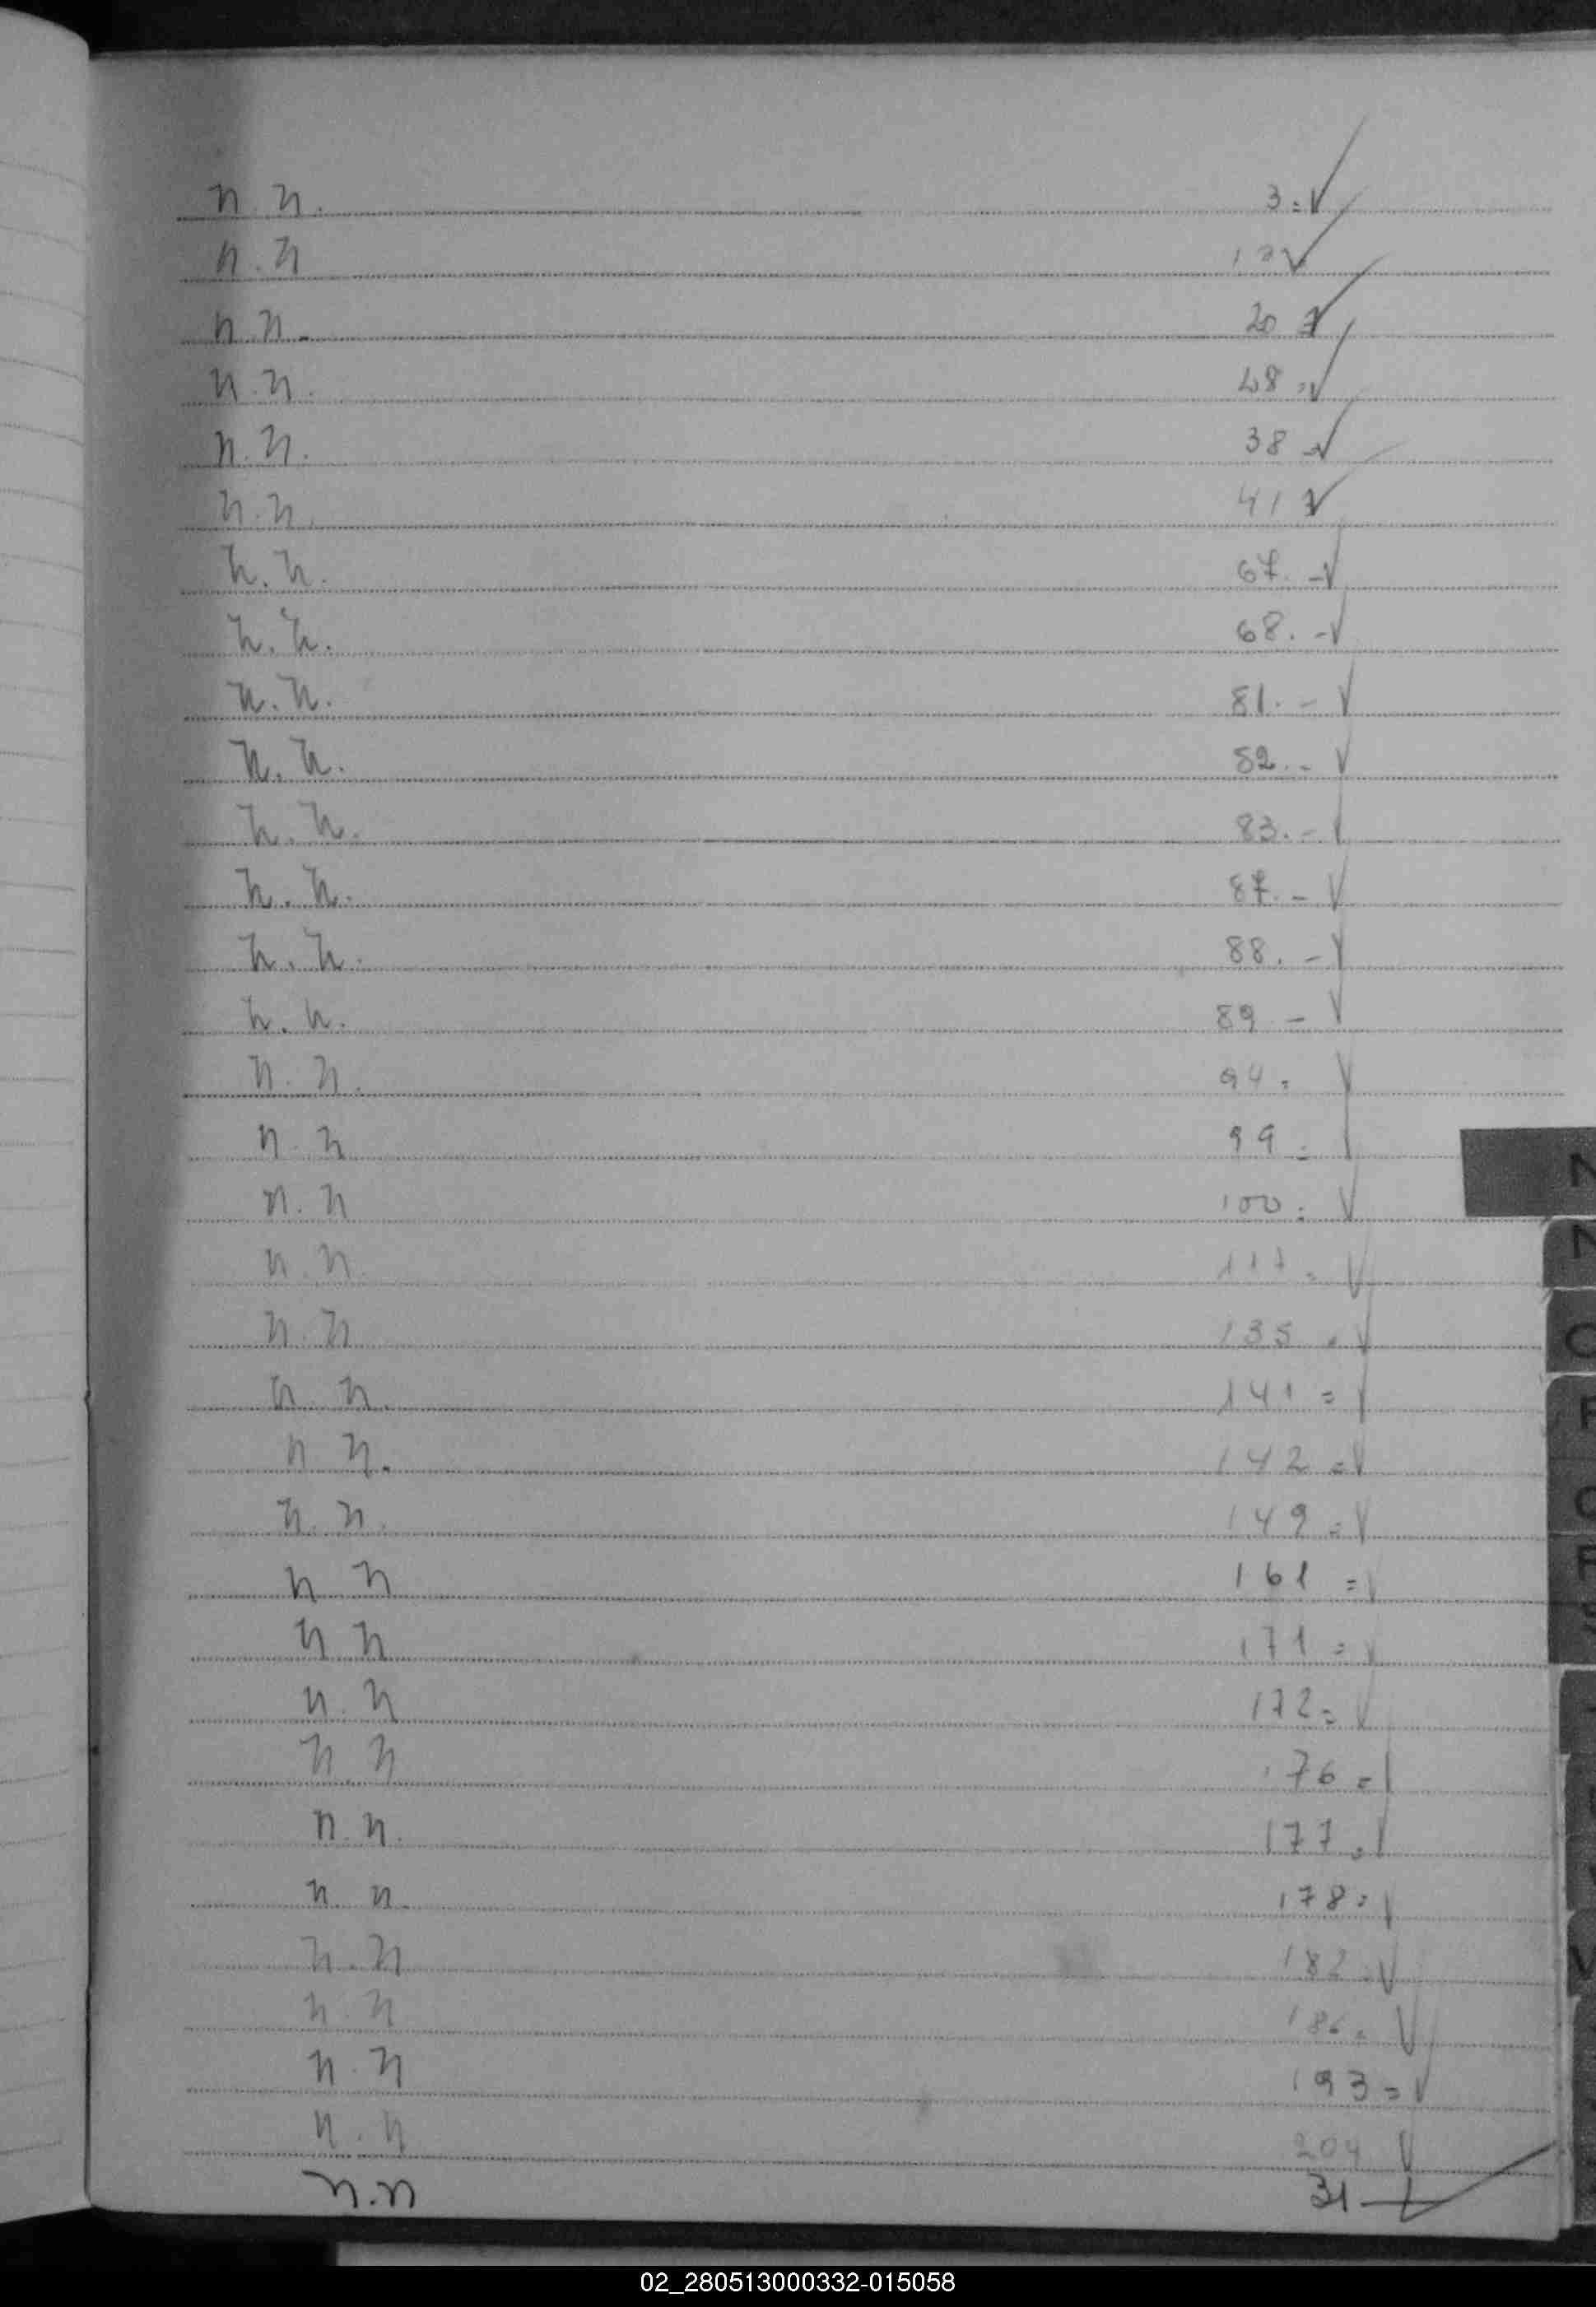 n. n. 3.=
n. n
n. n. 20 =
n. n. 48 =
n. n. 38 =
n. n. 41 =
n. n. 67. -
n. n. 68. -
n. n. 81. -
n. n. 82. -
n. n. 83. -
n. n. 87. -
n. n. 88. -
n. n. 89 -
n. n. 94 =
n. n 99 =
n. n 100 =
n. n. 117 =
n. n 135 =
n. n. 141 =
n n. 142 =
n. n. 149 =
n n 161 =
n n 171 =
n. n 172 =
n. n 176 =
n. n. 177 =
n. n. 178 =
n. n 182 =
n. n 186 =
n. n 193 =
n. n 204
n. n 31
N
N
O
P
Q
R
S
V
02_280513000332-015058